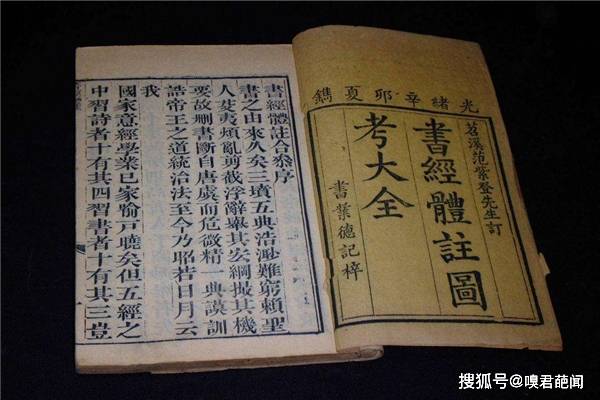 光緒辛卯夏鐫
苕溪范紫登先生訂
書經體註圖
考大全
書業德記梓
書經體註合叅序
書之由來久矣三墳五典浩渺難窮賴聖
人芟夷煩亂剪截浮辭舉其宏綱撮其機
要故刪書斷自唐虞而危微精一典謨訓
誥帝王之道統治法至今乃昭若日月云
我
國家意經學業已家喻戶曉矣但五經之
中習詩者十有其四習書者十有其三豈
搜狐号@嗅君葩闻